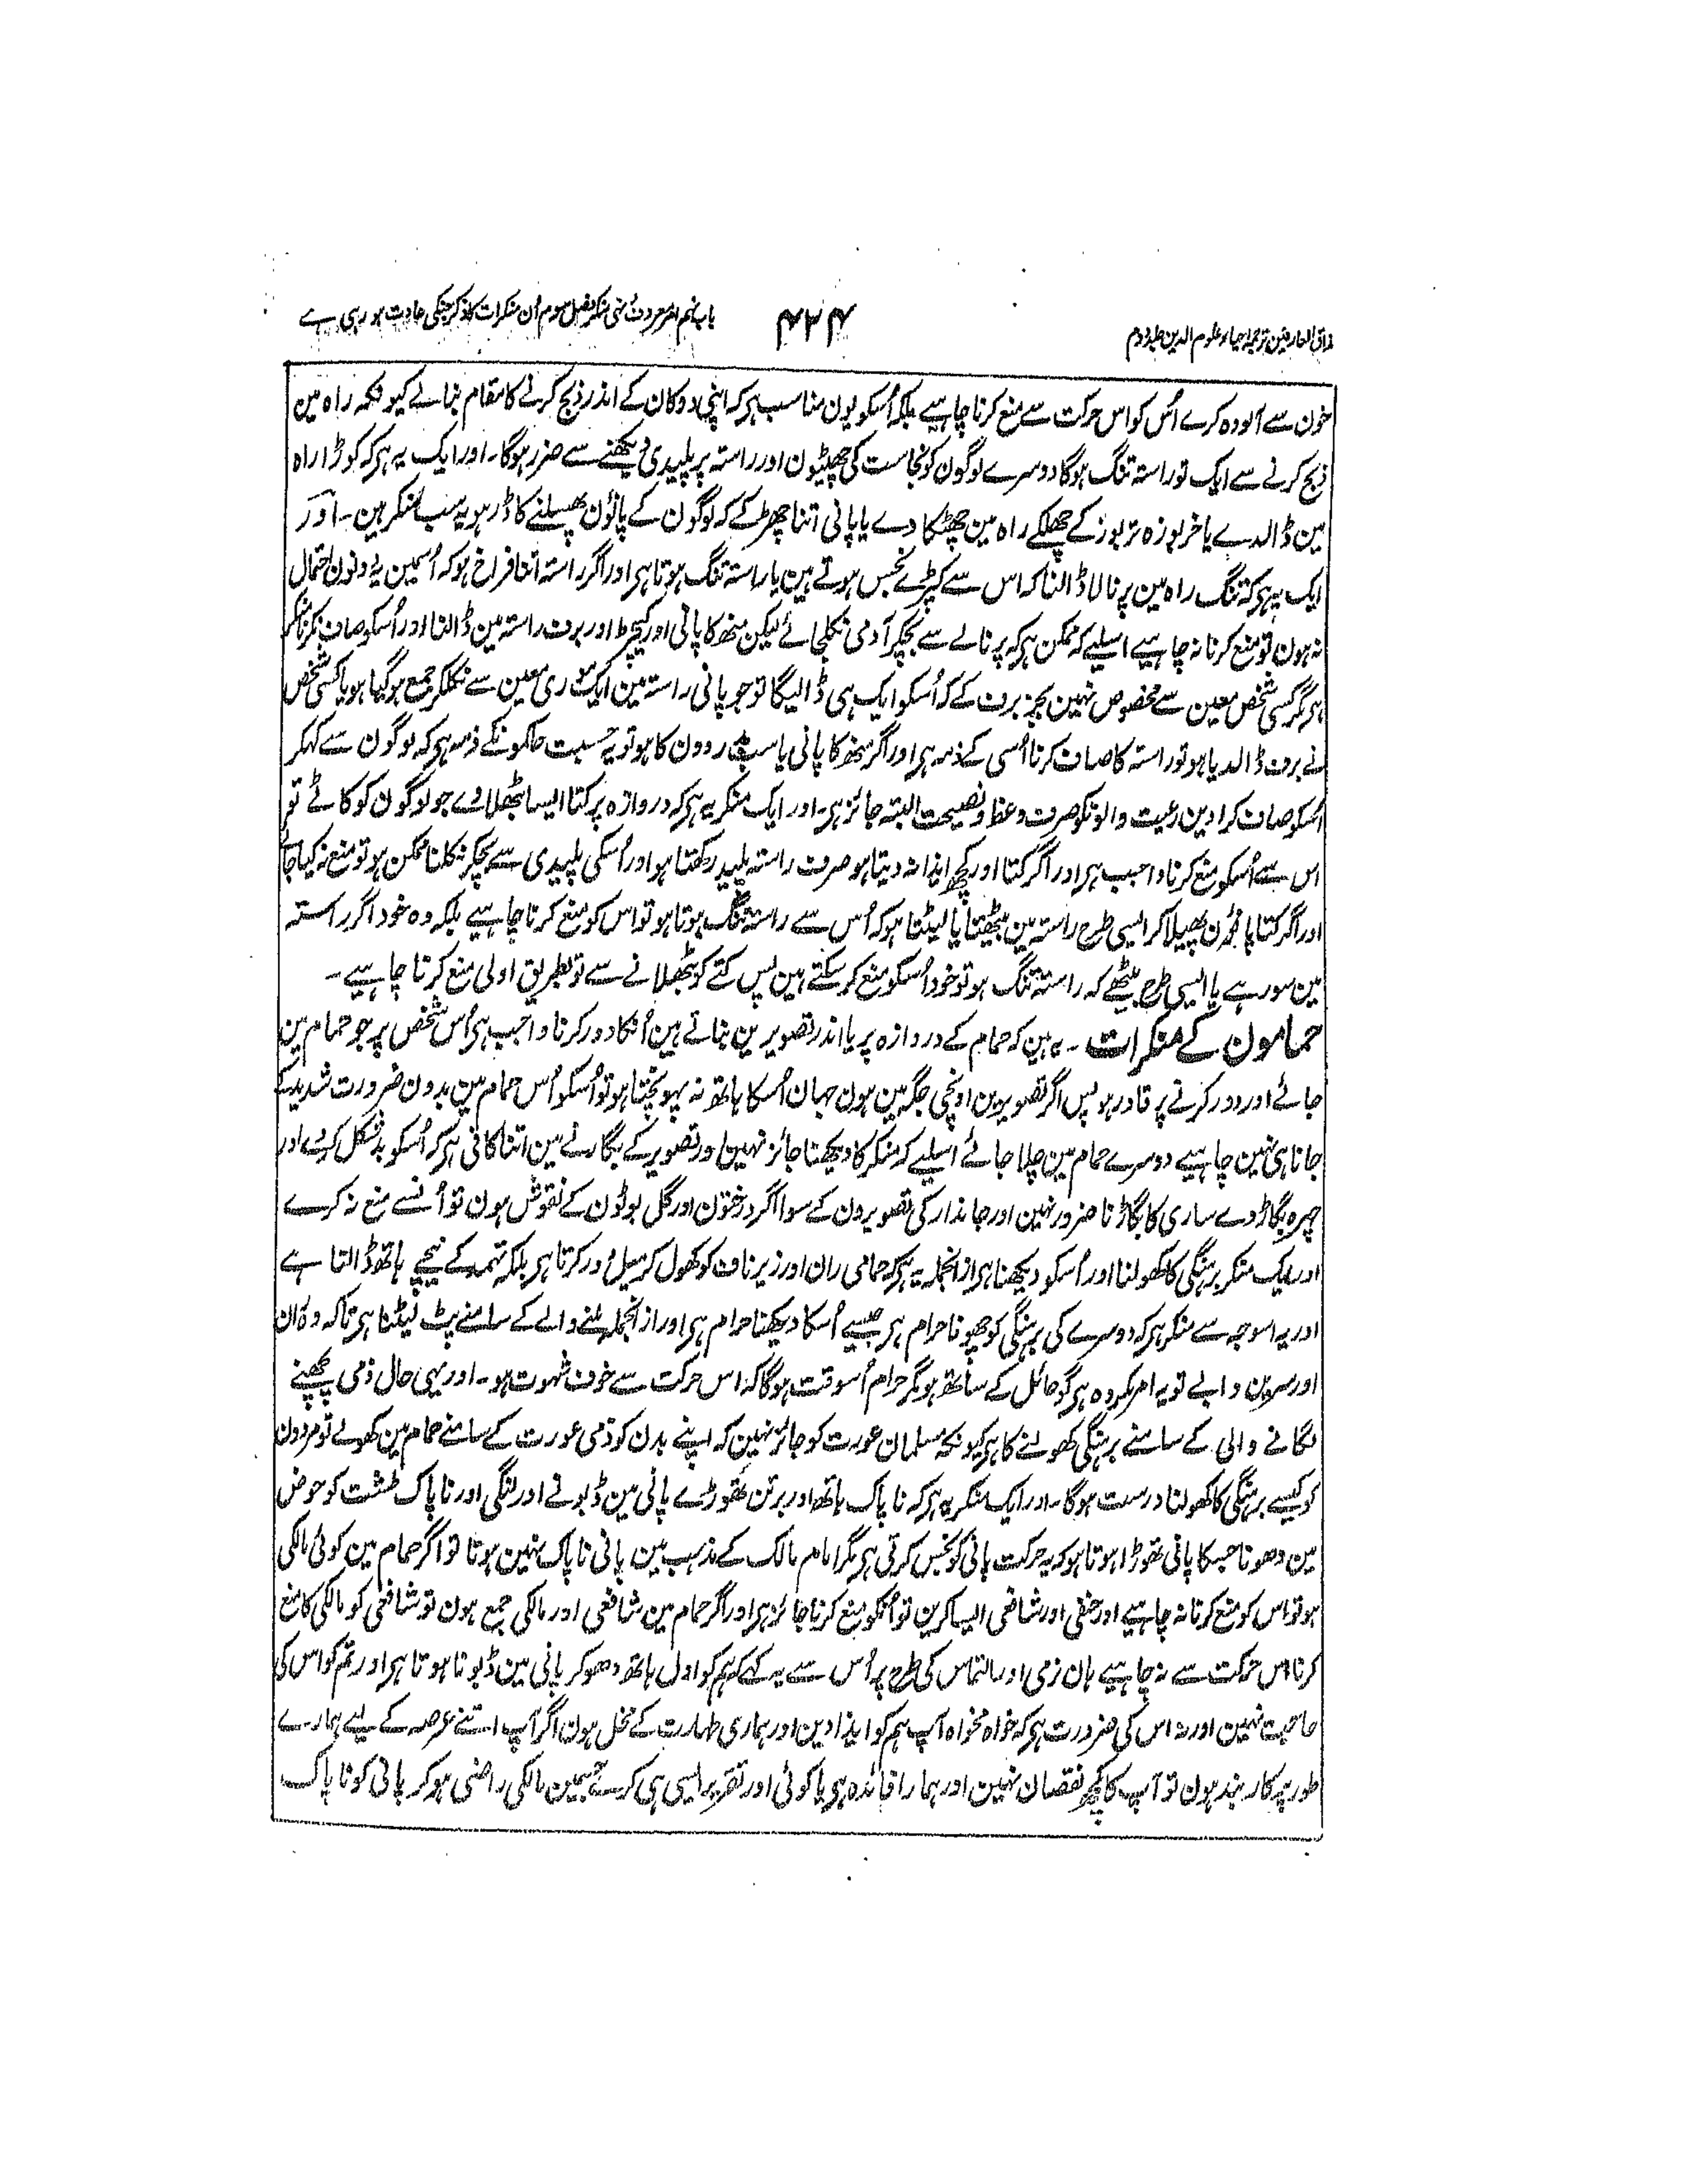 مذاق العارفین ترجمہ احیاء علوم الدین جلد دوم
۴۲۴
باب نہم امر معروف و نہی منکر فصل سوم اُن منکرات کا ذکر جنکی عادت ہو رہی ہے
خون سے آلودہ کرے اُس کو اس حرکت سے منع کرنا چاہیے بلکہ اُسکو یون مناسب ہر کہ اپنی دوکان کے اندر ذبح کرنے کا مقام بنا لے کیونکہ راہ مین
ذبح کرنے سے ایک تو راستہ تنگ ہوگا دوسرے لوگون کو نجاست کی چھینٹون اور راستہ پر پلیدی دیکھنے سے ضرر ہوگا۔ اور ایک یہ ہر کہ کوڑا راہ
مین ڈالدے یا خربوزہ تربوز کے چھلکے راہ مین چھٹکا دے یا پانی اتنا چھڑکے کہ لوگون کے پاؤن پھسلنے کا ڈر ہو یہ سب منکر ہین۔ اور
ایک یہ ہر کہ تنگ راہ مین پرنالا ڈالنا کہ اس سے کپڑے نجس ہوتے ہین یا راستہ تنگ ہوتا ہر اور اگر راستہ اتنا فراخ ہو کہ اُسمین یہ دونون احتمال
نہ ہون تو منع کرنا نہ چاہیے اسلیے کہ ممکن ہر کہ پرنالے سے بچکر آدمی نکلجائے لیکن منھ کا پانی اور کیچڑ اور برف راستہ مین ڈالنا اور اُسکو صاف نکرنا منکر
ہر مگر کسی شخص معین سے مخصوص نہین بجز برف کے کہ اُسکو ایک ہی ڈالیگا تو جو پانی راستہ مین ایک موری معین سے نکلکر جمع ہو گیا ہو یا کسی شخص
نے برف ڈالدیا ہو تو راستہ کا صاف کرنا اُسی کے ذمہ ہر اور اگر منھ کا پانی یا سب کا ہو تو یہ حسبت حاکمونکے ذمہ ہر کہ لوگون سے کہکر
اُسکو صاف کرا دین رعیت والونکو صرف وعظ و نصیحت البتہ جائز ہر۔ اور ایک منکر یہ ہر کہ دروازہ پر کتا ایسا بٹھلاوے جو لوگون کو کاٹے تو
اس سے اُسکو منع کرنا واجب ہر اور اگر کتا اور کچھ ایذا نہ دیتا ہو صرف راستہ پلید رکھتا ہو اور اُسکی پلیدی سے بچکر نکلنا ممکن ہو تو منع نہ کیا جائے
اور اگر کتا پاؤن پھیلا کر ایسی طرح راستہ مین بیٹھتا یا لیٹتا ہو کہ اُس سے راستہ تنگ ہوتا ہو تو اس کو منع کرنا چاہیے بلکہ وہ خود اگر راستہ
مین سو رہے یا ایسی طرح بیٹھے کہ راستہ تنگ ہو تو خود اُسکو منع کر سکتے ہین پس کتے کو بٹھلانے سے تو بطریق اولی منع کرنا چاہیے۔
حمامون کے منکرات۔ یہ ہین کہ حمام کے دروازہ پر یا اندر تصویرین بناتے ہین اُنکا دور کرنا واجب ہی اُس شخص پر جو حمام مین
جائے اور دور کرنے پر قادر ہو پس اگر تصویرین اونچی جگہ مین ہون جہان اُسکا ہاتھ نہ پہونچتا ہو تو اُسکو اُس حمام مین بدون ضرورت شدید کے
جانا ہی نہین چاہیے دوسرے حمام مین چلا جائے اسلیے کہ منکر کا دیکھنا جائز نہین اور تصویر کے بگاڑنے مین اتنا کافی ہر کہ اُسکو بدشکل کر دے اور
چہرہ بگاڑ دے ساری کا بگاڑنا ضرور نہین اور جاندار کی تصویرون کے سوا اگر درختون اور گل بوٹون کے نقوش ہون تو اُنسے منع نہ کرے
اور ایک منکر برہنگی کا کھولنا اور اُسکو دیکھنا ہر از انجملہ یہ ہر کہ حمامی ران اور زیر ناف کو کھول کر میل دور کرتا ہر بلکہ تہمد کے نیچے ہاتھ ڈالتا ہے
اور یہ اسوجہ سے منکر ہر کہ دوسرے کی برہنگی کو چھونا حرام ہر جیسے اُسکا دیکھنا حرام ہر اور از انجملہ ملنے والے کے سامنے پٹ لیٹنا ہر تاکہ وہ ران
اور سرین دابے تو یہ امر مکروہ ہر گو حائل کے ساتھ ہو مگر حرام اُسوقت ہوگا کہ اس حرکت سے خوف شہوت ہو۔ اور یہی حال ذمی پچھنے
لگانے والی کے سامنے برہنگی کھولنے کا ہر کیونکہ مسلمان عورت کو جائز نہین کہ اپنے بدن کو ذمی عورت کے سامنے حمام مین کھولے تو مردون
کو کیسے برہنگی کا کھولنا درست ہوگا۔ اور ایک منکر یہ ہر کہ ناپاک ہاتھ اور برتن تھوڑے پانی مین ڈبونے اور لنگی اور ناپاک طشت کو حوض
مین دھونا جسکا پانی تھوڑا ہوتا ہو کہ یہ حرکت پانی کو نجس کرتی ہر مگر امام مالک کے مذہب مین پانی ناپاک نہین ہوتا تو اگر حمام مین کوئی مالکی
ہو تو اس کو منع کرنا نہ چاہیے اور حنفی اور شافعی ایسا کرین تو اُنکو منع کرنا جائز ہر اور اگر حمام مین شافعی اور مالکی جمع ہون تو شافعی کو مالکی کا منع
کرنا اس حرکت سے نہ چاہیے ہان نرمی اور التماس کی طرح پر اُس سے یہ کہے کہ ہم کو اول ہاتھ دھو کر پانی مین ڈبونا ہوتا ہر اور تم کو اس کی
حاجت نہین اور نہ اس کی ضرورت ہر کہ خواہ مخواہ آپ ہم کو ایذا دین اور ہماری طہارت کے مخل ہون اگر آپ اتنے عرصہ کے لیے ہمارے
طور پر کاربند ہون تو آپ کا کچھ نقصان نہین اور ہمارا فائدہ ہی یا کوئی اور تقریر ایسی ہی کرے جسمین مالکی راضی ہو کر پانی کو ناپاک